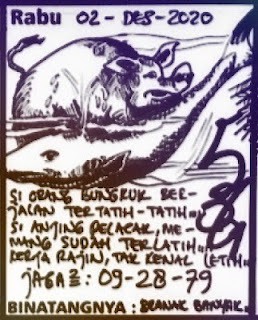 Rabu 02 - DES - 2020
SI ORANG BUNGKUK BER-
JALAN TERTATIH-TATIH,,
SI ANJING PELACAK, ME-
MANG SUDAH TERLATIH,,
KERJA RAJIN, TAK KENAL LETIH,,
JAGA²: 09-28-79
BINATANGNYA : BERANAK BANYAK.